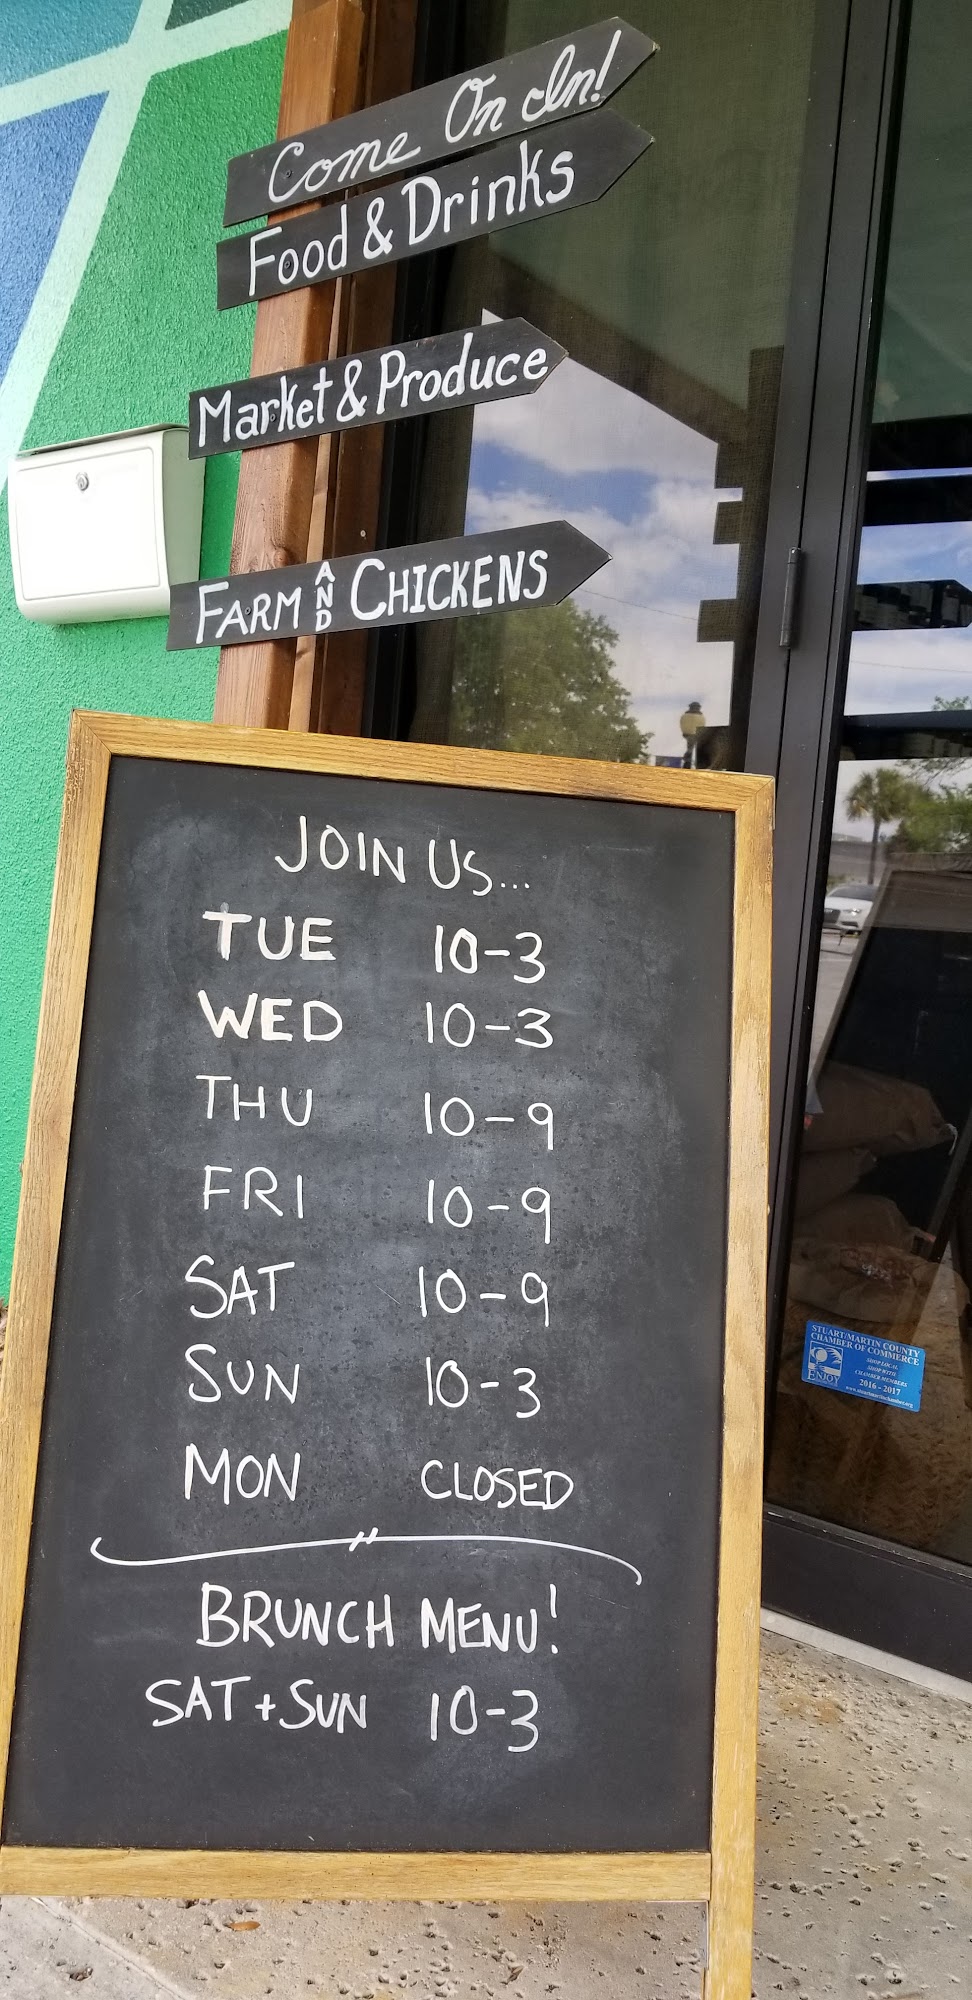 Come On In!
Food & Drinks
Market & Produce
FARM AND CHICKENS
JOIN US...
TUE 10-3
WED 10-3
THU 10-9
FRI 10-9
SAT 10-9
SUN 10-3
MON CLOSED
BRUNCH MENU!
SAT + SUN 10-3
STUART/MARTIN COUNTY
CHAMBER OF COMMERCE
SHOP LOCAL
SHOP WITH
CHAMBER MEMBERS
ENJOY
2016 - 2017